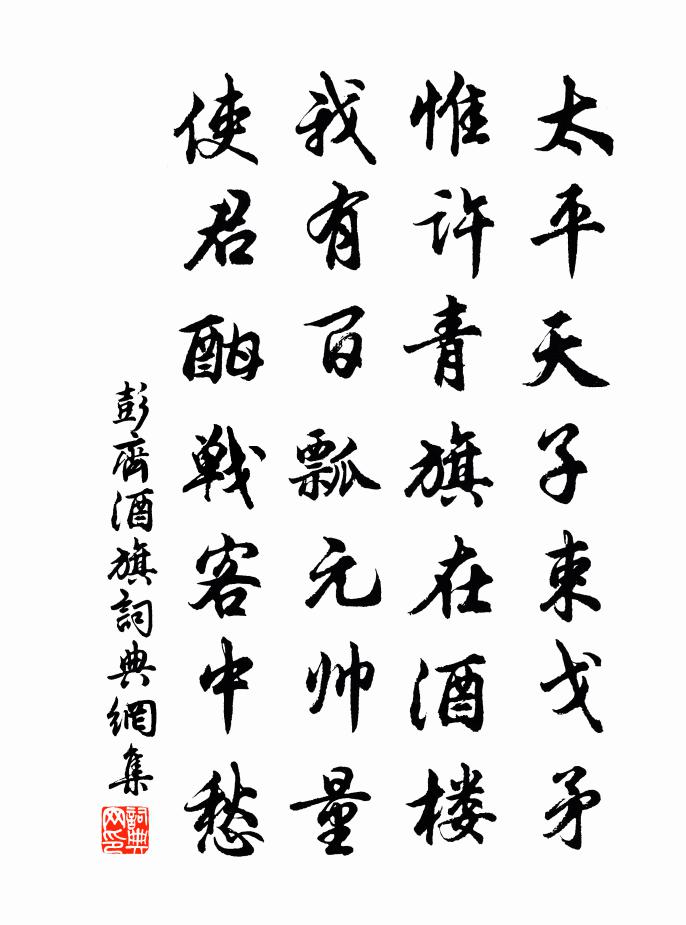 太平天子束戈矛
惟许青旗在酒楼
我有百瓢元帅量
使君酣戦客中愁
彭齊酒旗詞典網集
詞典网印